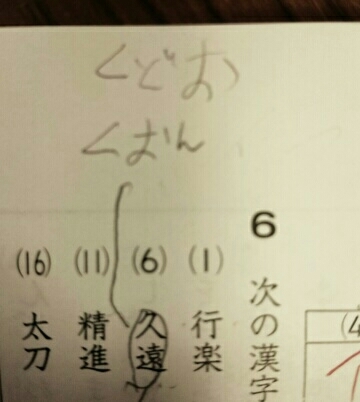 くどお
くおん
6 次の漢字
(1) 行楽
(6) 久遠
(11) 精進
(16) 太刀
(4